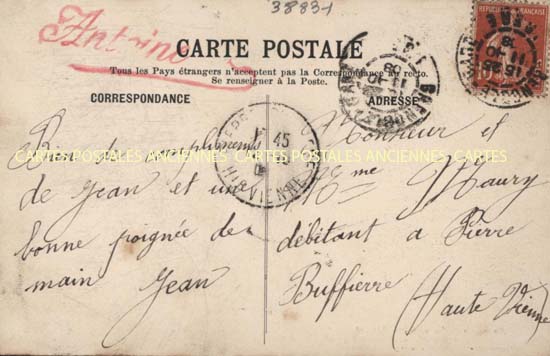 38831
Antoine
CARTE POSTALE
Tous les Pays étrangers n'acceptent pas la Correspondance au recto.
Se renseigner à la Poste.
CORRESPONDANCE
ADRESSE
Bien des compliments
de Jean et une
bonne poignée de
main Jean
Monsieur et
Mme Maury
débitant a Pierre
Buffierre
(Haute Vienne)
CARTES POSTALES ANCIENNES CARTES POSTALES ANCIENNES CARTES
45
HTE VIENNE
REPUBLIQUE FRANÇAISE
10